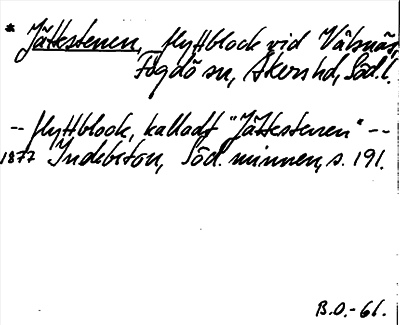 * Jättstenen, flyttblock vid Vålsnäs,
Fogdö sn, Åkers hd, Söd.l.
-- flyttblock, kalladt "Jättstenen" --
1877 Indebetou, Söd. minnen, s. 191.
B.O.-61.